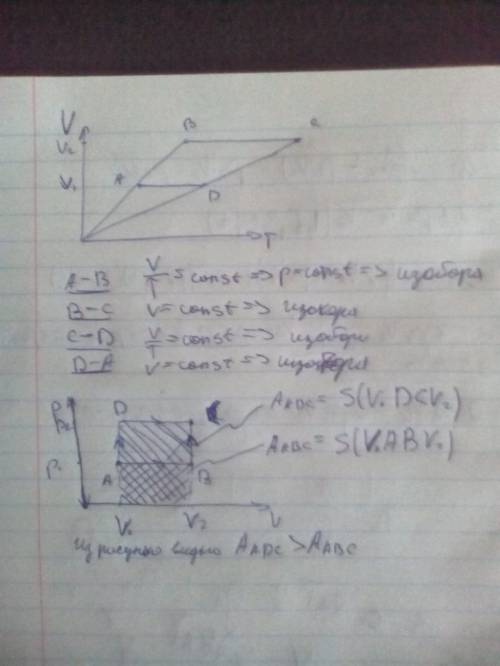 V
V₂
B
C
V₁
A
D
T
A-B V/T = const => p=const => изобара
B-C V=const => изохора
C-D V/T = const => изобара
D-A V=const => изохора
P
P₂
D
A_ADC = S(V₁DCV₂)
A_ABC = S(V₁ABV₂)
P₁
A
B
V₁
V₂
V
Из рисунка видно A_ADC > A_ABC